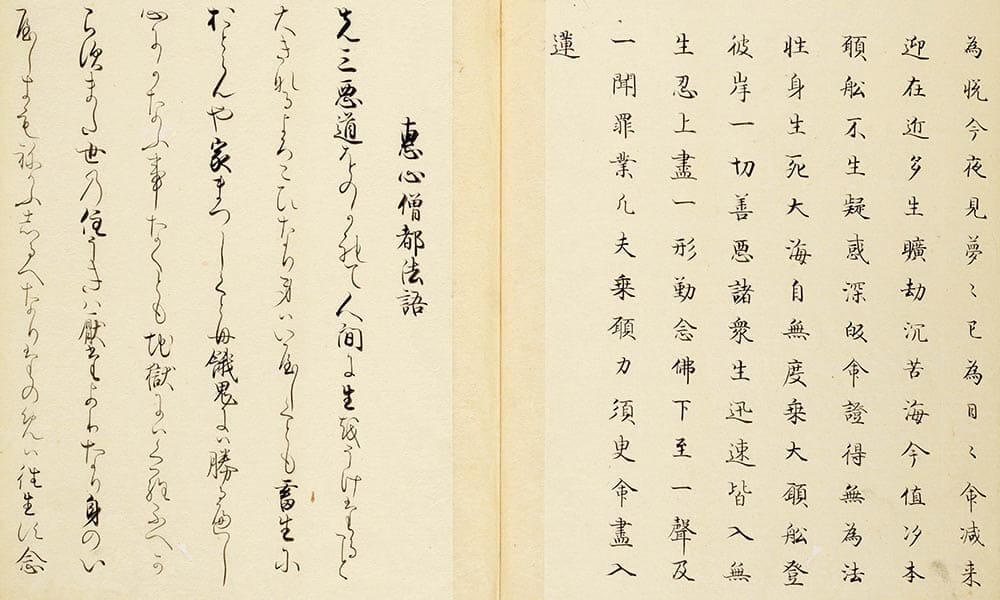 為悅今夜見夢〻已為日〻命減来
迎在近多生曠劫沉苦海今值本
願船不生疑惑深皈命證得無為法
性身生死大海自無度乗大願船登
彼岸一切善悪諸衆生迅速皆入無
生忍上盡一形動念佛下至一聲及
一聞罪業凡夫乗願力須臾命盡入
蓮
惠心僧都法語
夫三悪道をのかれて人間に生をうけたること
大きなるよろこひなり身はいやしくとも畜生に
おとらんや家まつしくとも餓鬼には勝るへし
心にかなふ事なくとも地獄にはくらふへか
らすまた世の住うきは厭たよりなり身のい
やしきもねかふしるへなり徃生は念